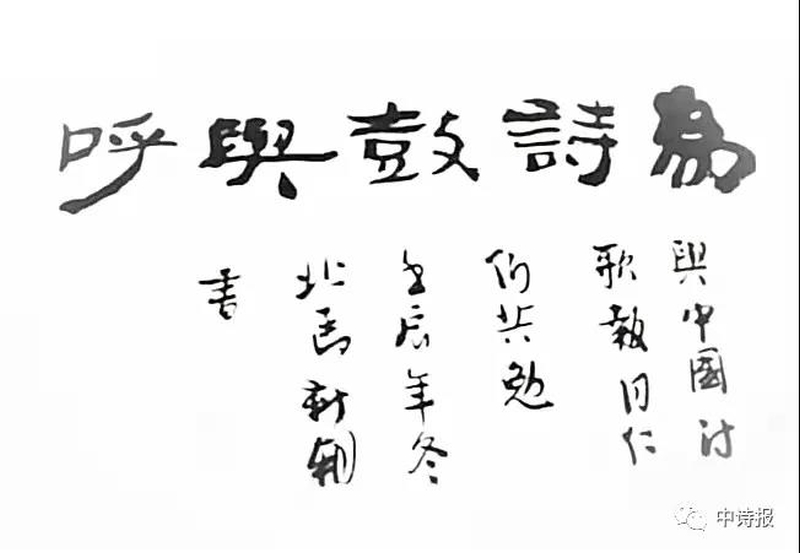 為詩鼓與呼
與中國詩
歌報同仁
們共勉
壬辰年冬
北馬新朝
書
中诗报